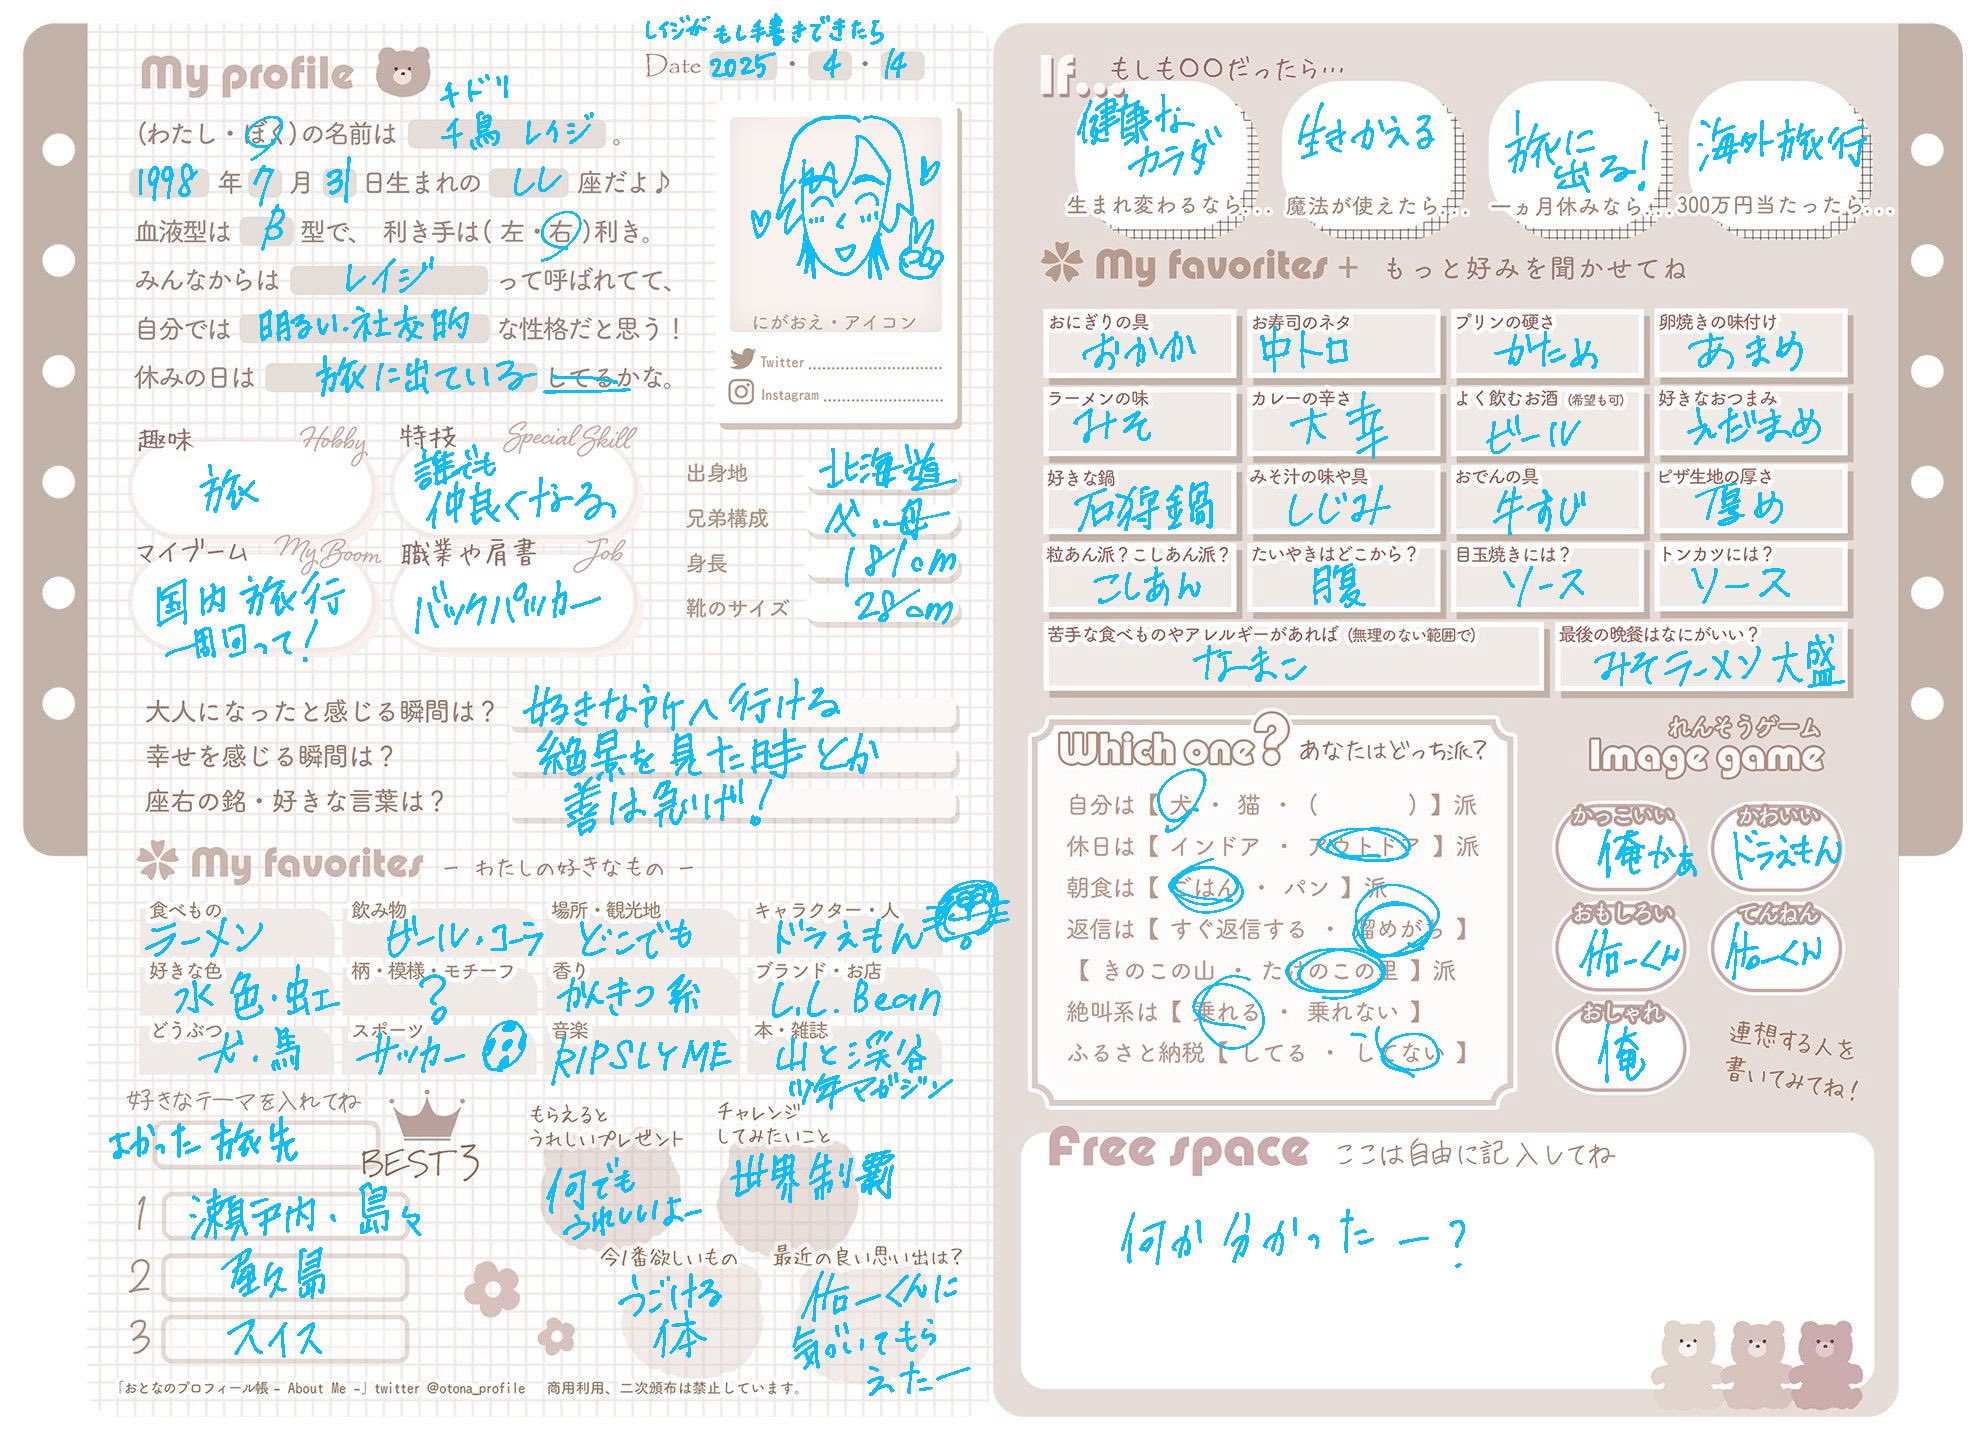 レイジがもし手書きできたら
My profile
Date 2025・4・14
チドリ
(わたし・ぼく)の名前は 千鳥 レイジ 。
1998 年 7 月 31 日生まれの しし 座だよ♪
血液型は B 型で、 利き手は(左・右)利き。
みんなからは レイジ って呼ばれてて、
自分では 明るい・社交的 な性格だと思う!
休みの日は 旅に出ている してるかな。
にがおえ・アイコン
Twitter
Instagram
趣味 Hobby
旅
特技 Special Skill
誰でも
仲良くなる
マイブーム My Boom
国内旅行
一周回って!
職業や肩書 Job
バックパッカー
出身地 北海道
兄弟構成 父・母
身長 181cm
靴のサイズ 28cm
大人になったと感じる瞬間は? 好きな所へ行ける
幸せを感じる瞬間は? 絶景を見た時とか
座右の銘・好きな言葉は? 善は急げ!
My favorites - わたしの好きなもの -
食べもの
ラーメン
飲み物
ビール・コーラ
場所・観光地
どこでも
キャラクター・人
ドラえもん
好きな色
水色・虹
柄・模様・モチーフ
?
香り
かんきつ系
ブランド・お店
L.L.Bean
どうぶつ
犬・馬
スポーツ
サッカー
音楽
RIPSLYME
本・雑誌
山と渓谷
少年マガジン
好きなテーマを入れてね
よかった旅先
BEST3
1 瀬戸内・島々
2 屋久島
3 スイス
もらえると
うれしいプレゼント
何でも
うれしいよー
チャレンジ
してみたいこと
世界制覇
今1番欲しいもの
うごける
体
最近の良い思い出は?
佑一くんに
気づいてもら
えたー
「おとなのプロフィール帳 - About Me -」twitter @otona_profile 商用利用、二次頒布は禁止しています。
If... もしも〇〇だったら…
健康な
カラダ
生まれ変わるなら...
生きかえる
魔法が使えたら...
旅に
出る!
一ヵ月休みなら...
海外旅行
300万円当たったら...
My favorites + もっと好みを聞かせてね
おにぎりの具
おかか
お寿司のネタ
中トロ
プリンの硬さ
かため
卵焼きの味付け
あまめ
ラーメンの味
みそ
カレーの辛さ
大辛
よく飲むお酒 (希望も可)
ビール
好きなおつまみ
えだまめ
好きな鍋
石狩鍋
みそ汁の味や具
しじみ
おでんの具
牛すじ
ピザ生地の厚さ
厚め
粒あん派?こしあん派?
こしあん
たいやきはどこから?
腹
目玉焼きには?
ソース
トンカツには?
ソース
苦手な食べものやアレルギーがあれば (無理のない範囲で)
なまこ
最後の晩餐はなにがいい?
みそラーメン大盛
Which one? あなたはどっち派?
自分は【 犬 ・ 猫 ・ ( ) 】派
休日は【 インドア ・ アウトドア 】派
朝食は【 ごはん ・ パン 】派
返信は【 すぐ返信する ・ 溜めがち 】
【 きのこの山 ・ たけのこの里 】派
絶叫系は【 乗れる ・ 乗れない 】
ふるさと納税【 してる ・ してない 】
れんそうゲーム
Image game
かっこいい
俺かぁ
かわいい
ドラえもん
おもしろい
佑一くん
てんねん
佑一くん
おしゃれ
俺
連想する人を
書いてみてね!
Free space ここは自由に記入してね
何か分かったー?